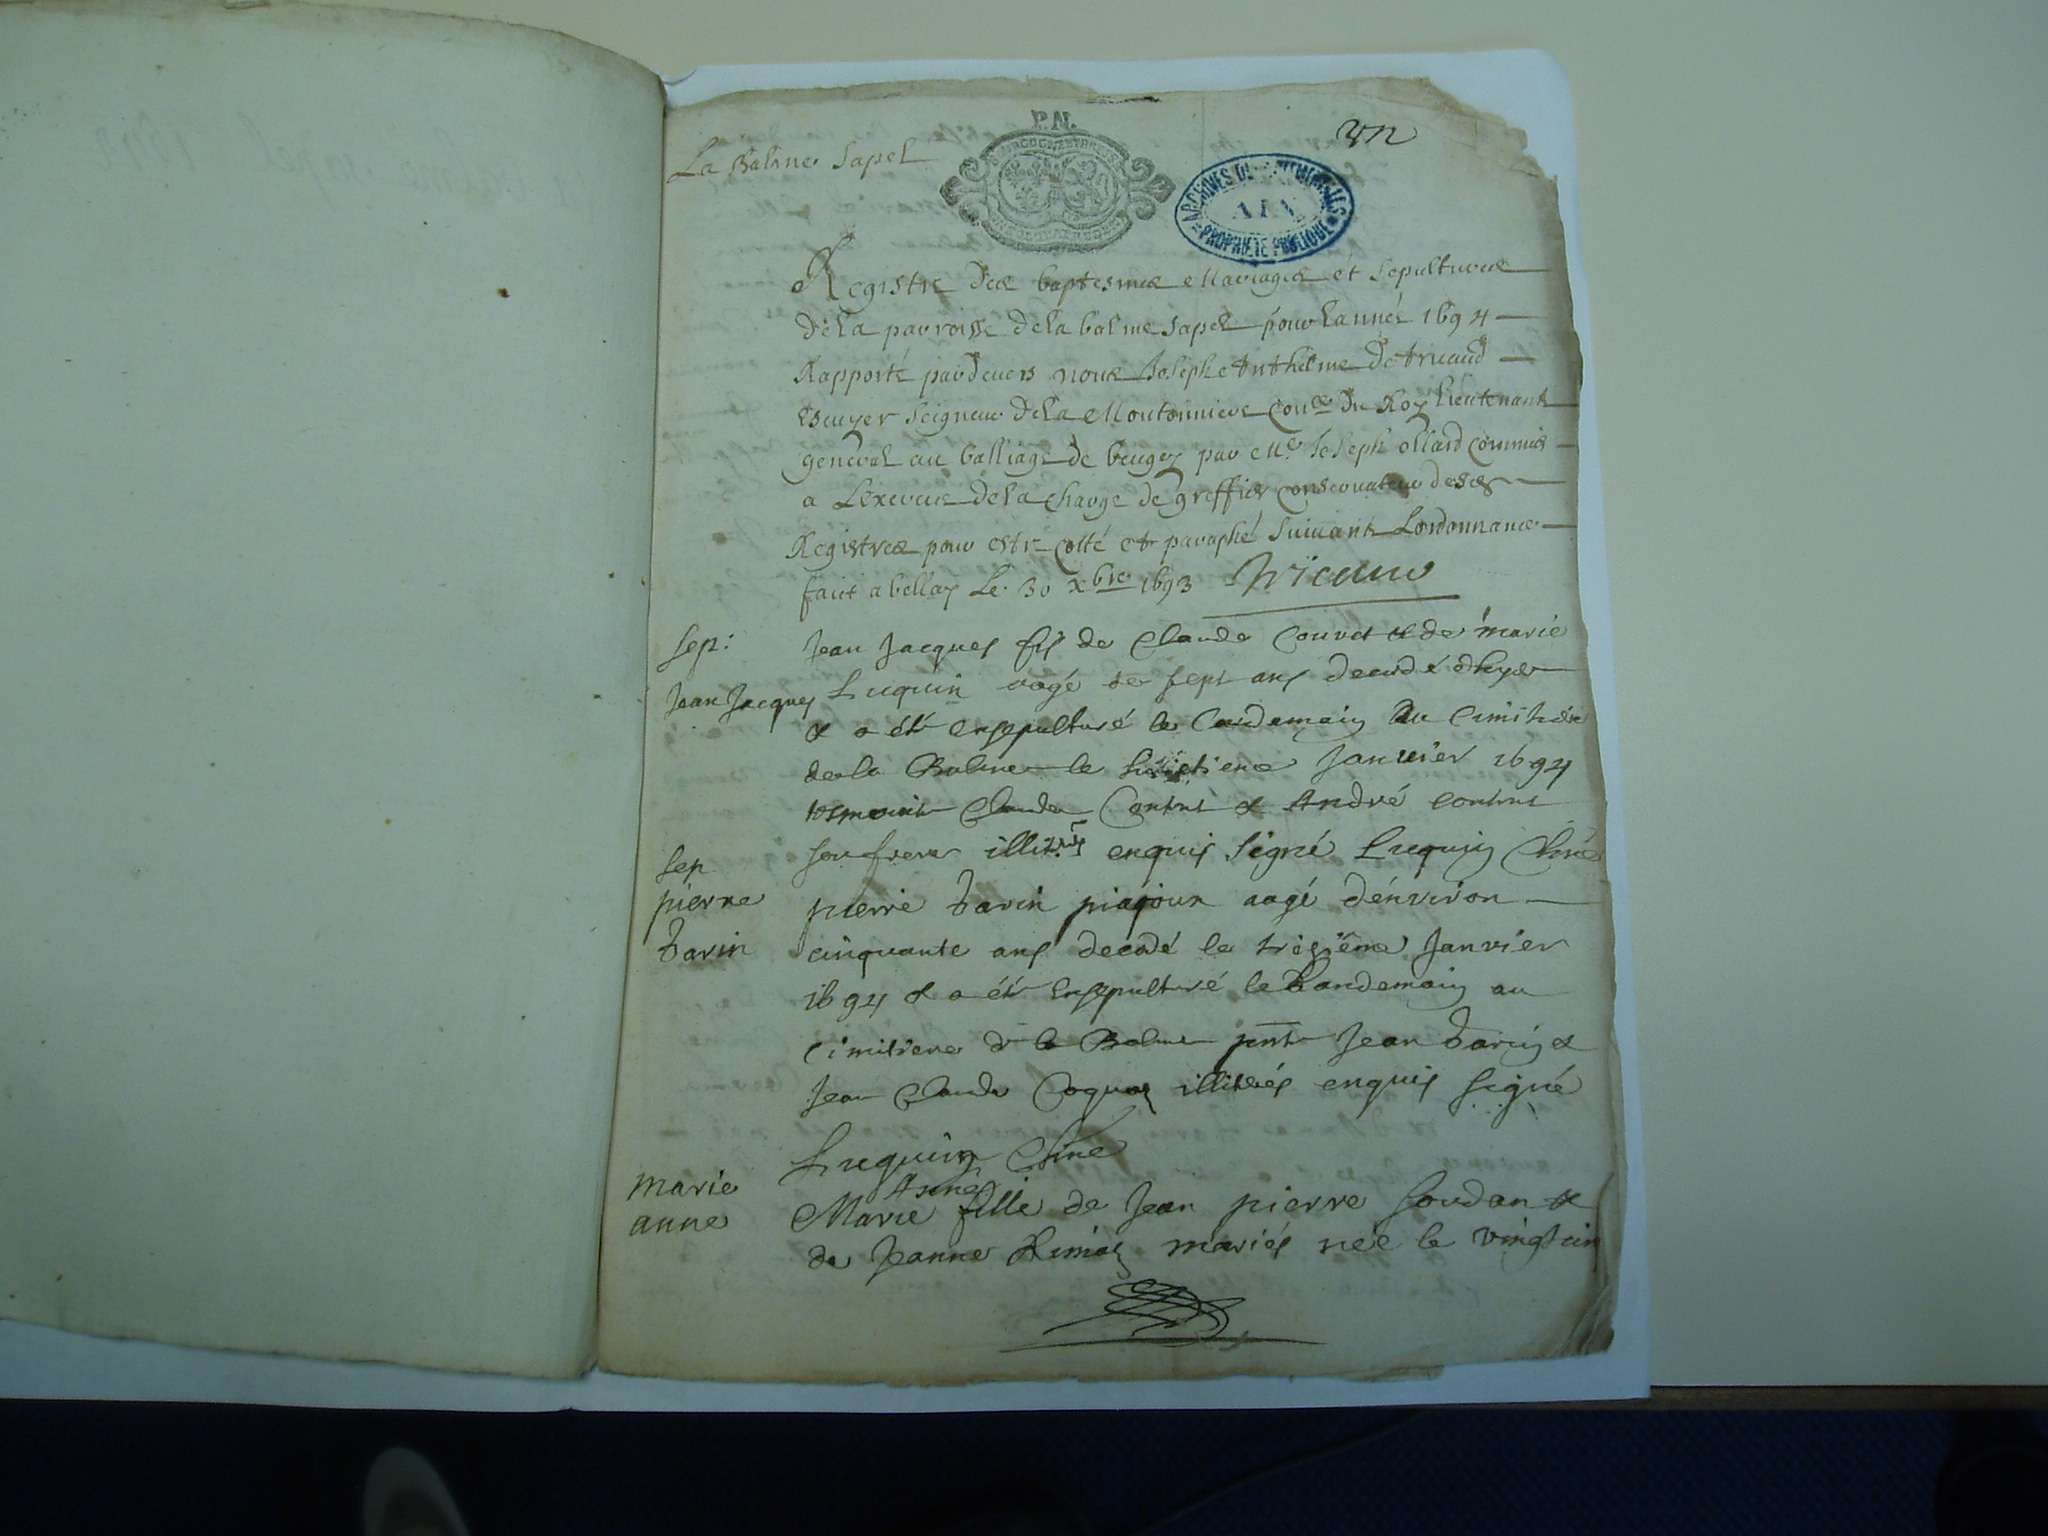 P.N.
un
La Balme Sapel
ARCHIVES DEPARTEMENTALES
AIN
PROPRIETE PUBLIQUE
Registre des baptesmes Mariages et sepultures
de la parroisse de la balme sapel pour lannée 1694
Rapporté pardevers nous Joseph Anthelme De tricaud
Escuyer seigneur de la Moutonniere Conr du Roy Lieutenant
general au balliage de beugey par Me Joseph ollard commis
a Lexercice de la charge de greffier conservateur desdes
Registres pour estre cotté et paraphé suivant Lordonnance
fait a bellay Le 30 xbre 1693 Tricaud
Sep:
Jean Jacques fis de Claude Couvet & de marie
Jean Jacques
Luquin aagé de sept ans decedé dhyer
& a été ensepulturé le landemain au cimitiere
de la Balme le Janvier 1694
Claude & André
son frere illitrés enquis signé Luquin Curé
Sep
pierre
Tarin
pierre Tarin aagé dénviron
cinquante ans decedé le trezième Janvier
1694 & a été ensepulturé le landemain au
cimitiere de la Balme pnts Jean Tarin &
Jean Claude Coquaz illitrés enquis signé
Luquin Curé
Marie
anne
Anne
Marie fille de Jean pierre Goudan &
de Jeanne mariés née le vingt cin